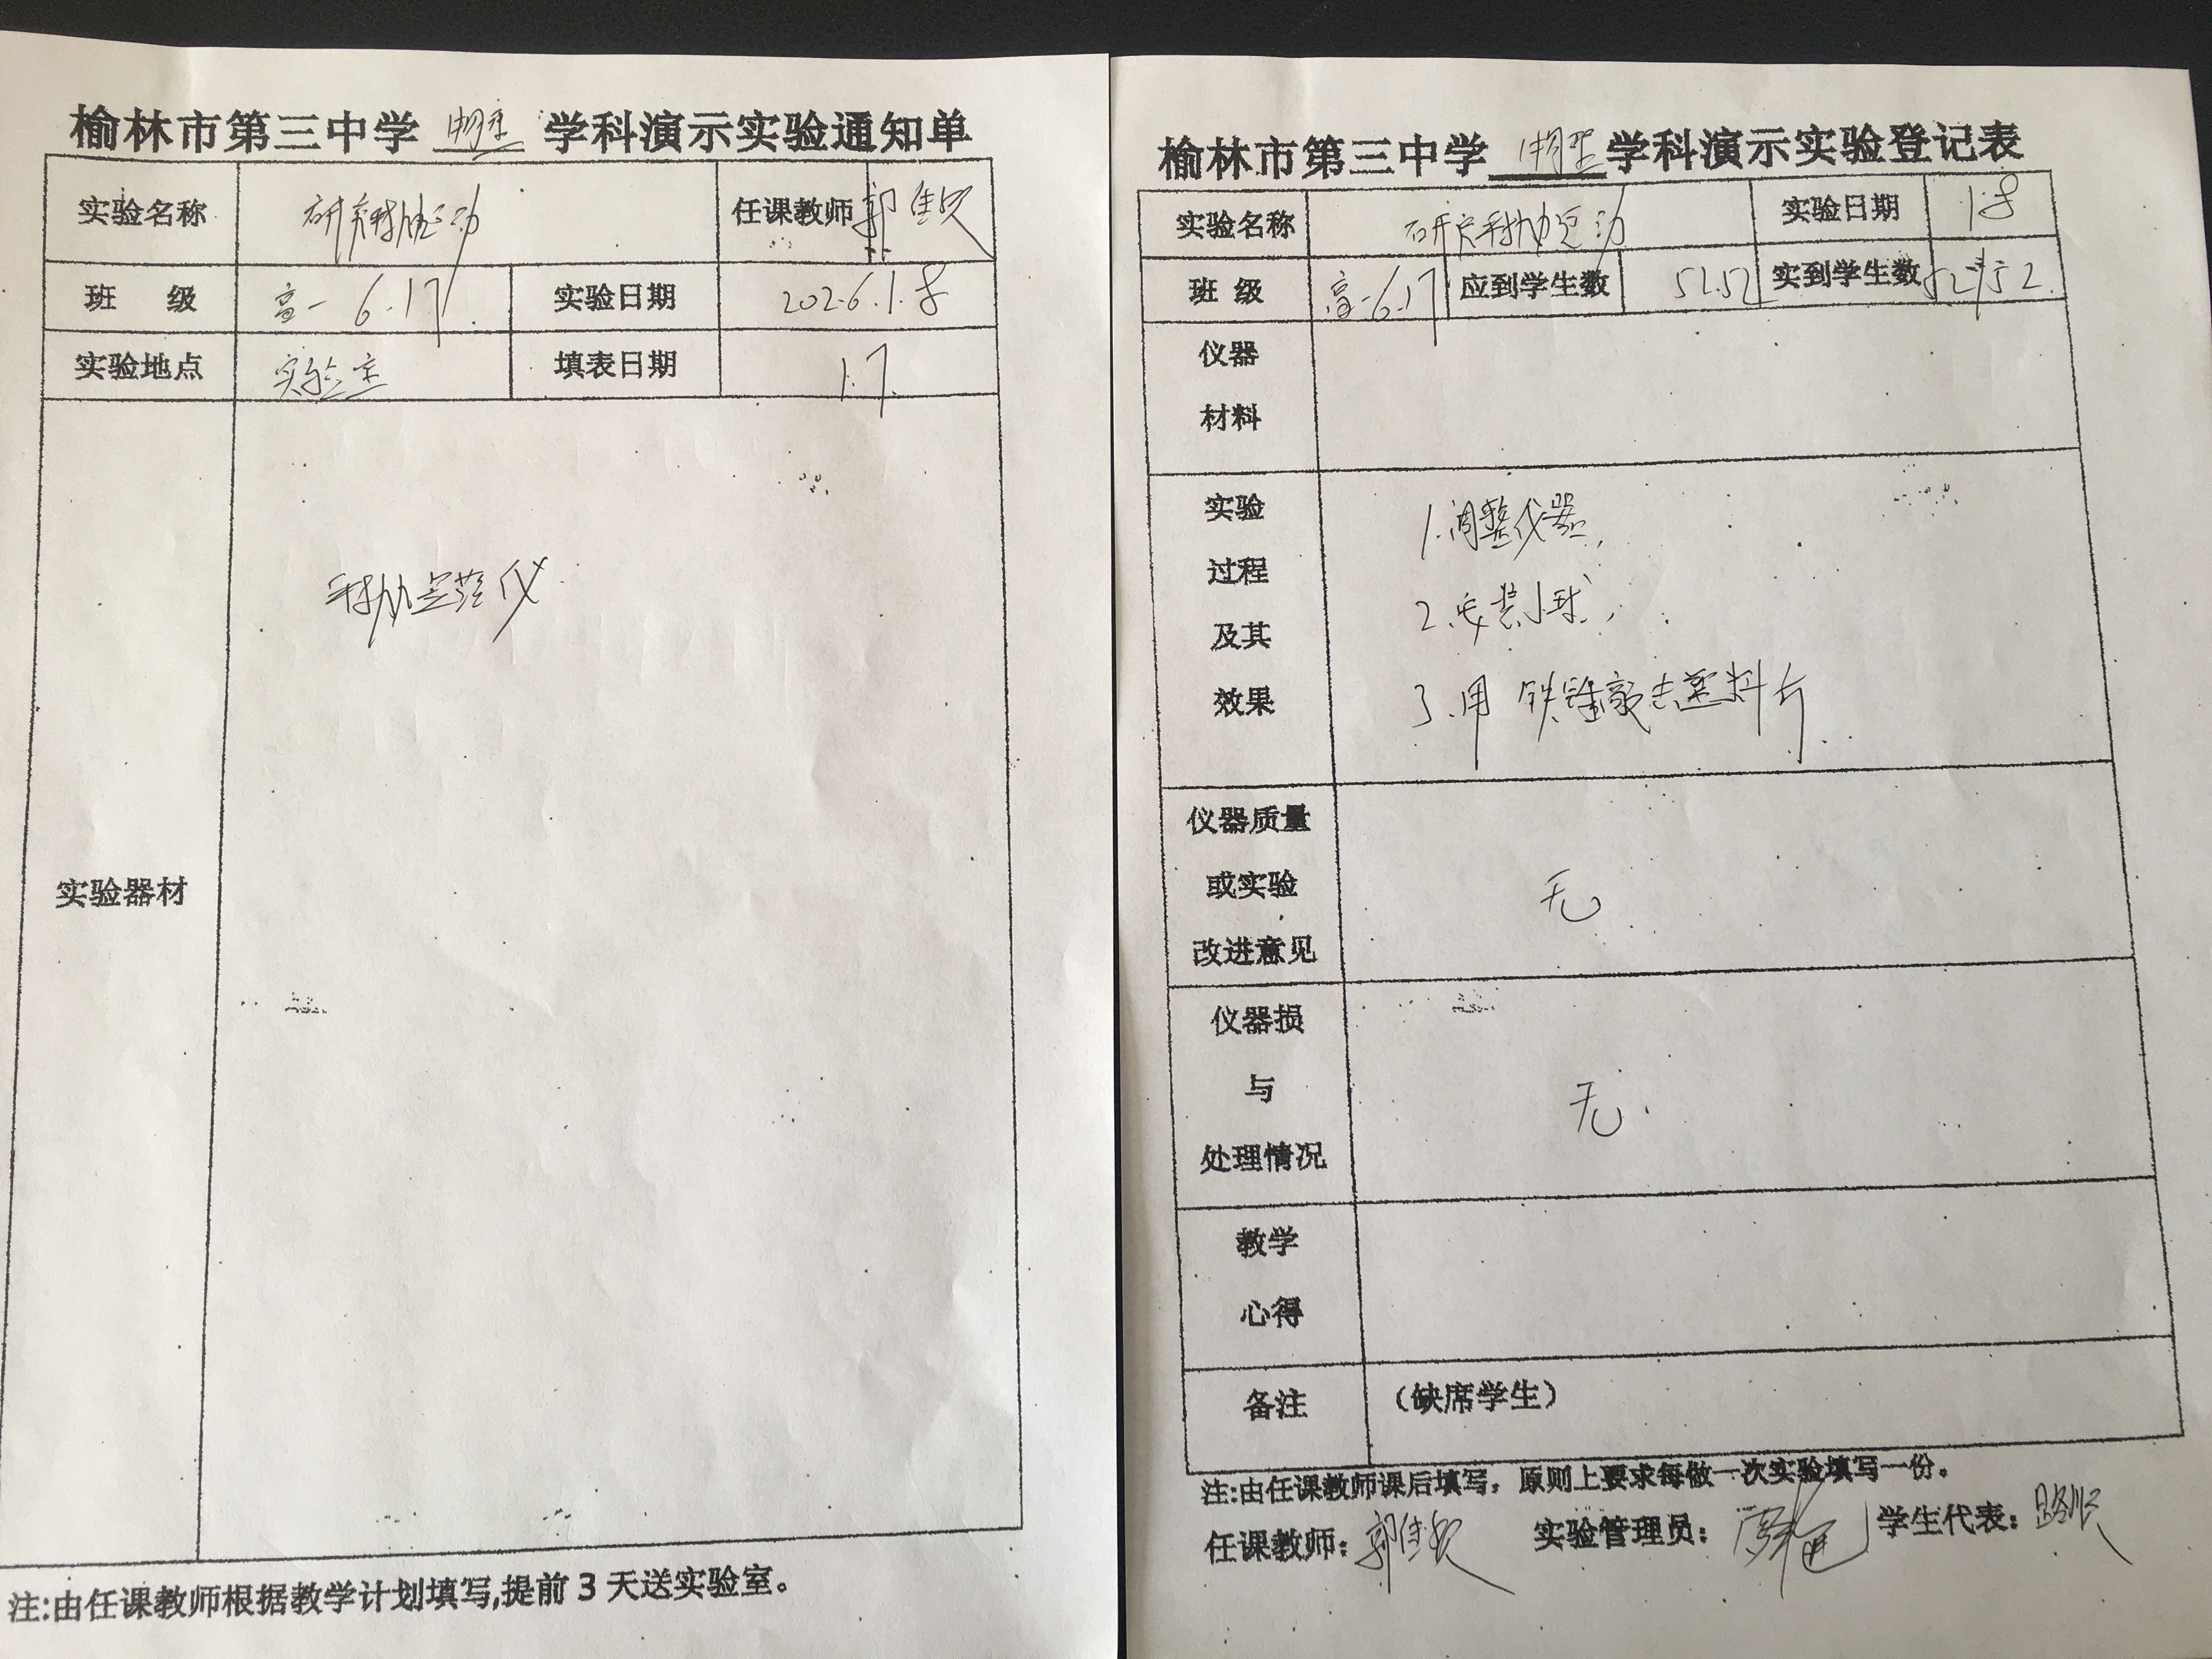 榆林市第三中学 物理 学科演示实验通知单
实验名称 研究抛体运动 任课教师 郭
班 级 高一 6.17 实验日期 202.6.1.8
实验地点 实验室 填表日期 1.7.
实验器材
实验仪
注:由任课教师根据教学计划填写,提前3天送实验室。
榆林市第三中学 物理 学科演示实验登记表
实验名称 研究抛体运动 实验日期 1.8
班 级 高一6.17 应到学生数 52.52 实到学生数 52/52.
仪器
材料
实验
过程
及其
效果
1.调整仪器,
2.安装小球,
3.用铁锤敲击塑料片
仪器质量
或实验
改进意见
无
仪器损
与
处理情况
无.
教学
心得
备注 (缺席学生)
注:由任课教师课后填写,原则上要求每做一次实验填写一份。
任课教师: 郭 实验管理员: 学生代表: